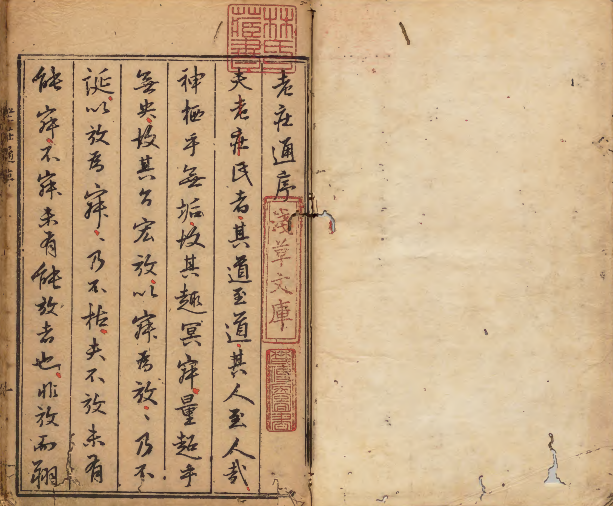 老莊通序
夫老莊氏者其道至道其人至人哉
神栖乎無垢故其趣冥寂量超乎
無央故其言宏放以寂為放々乃不
誕以放為寂々乃不枯夫不放未有
能寂不寂未有能放者也非放而翔
林氏藏書
淺草文庫